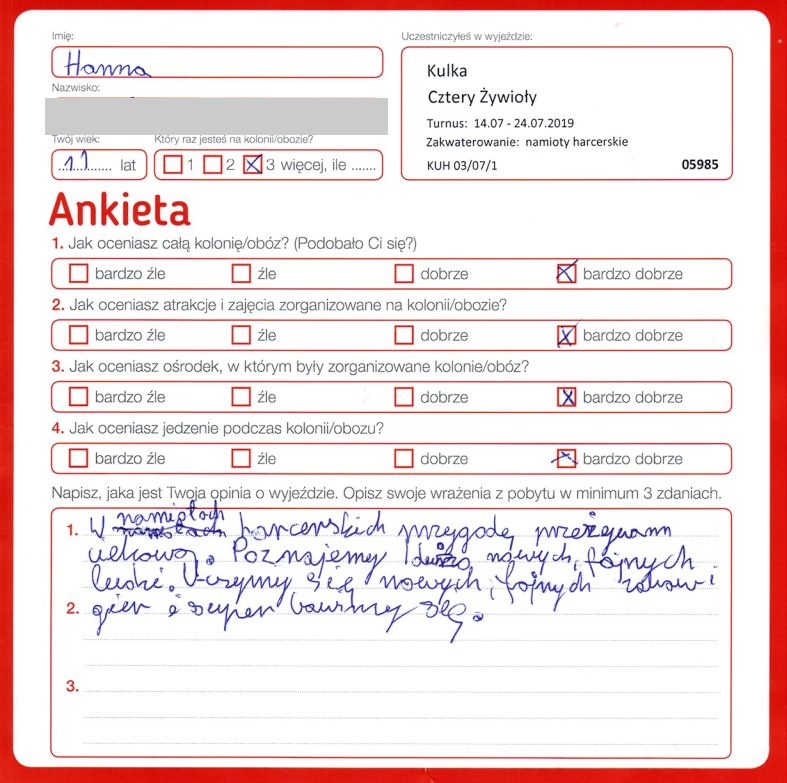 Imię:
Hanna
Nazwisko:
Twój wiek:
11 lat
Który raz jesteś na kolonii/obozie?
1 2 3 więcej, ile .......
Uczestniczyłeś w wyjeździe:
Kulka
Cztery Żywioły
Turnus: 14.07 - 24.07.2019
Zakwaterowanie: namioty harcerskie
KUH 03/07/1 05985
Ankieta
1. Jak oceniasz całą kolonię/obóz? (Podobało Ci się?)
bardzo źle źle dobrze bardzo dobrze
2. Jak oceniasz atrakcje i zajęcia zorganizowane na kolonii/obozie?
bardzo źle źle dobrze bardzo dobrze
3. Jak oceniasz ośrodek, w którym były zorganizowane kolonie/obóz?
bardzo źle źle dobrze bardzo dobrze
4. Jak oceniasz jedzenie podczas kolonii/obozu?
bardzo źle źle dobrze bardzo dobrze
Napisz, jaka jest Twoja opinia o wyjeździe. Opisz swoje wrażenia z pobytu w minimum 3 zdaniach.
1. W namiotach harcerskich przygodę przeżywam
. Poznajemy dużo nowych, fajnych
ludzi. Uczymy się nowych, fajnych zabaw i
2. gier i super bawimy się.
3.